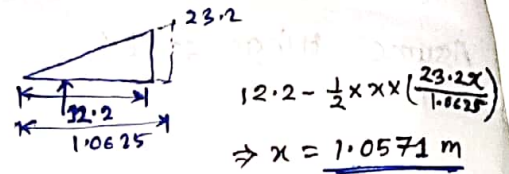 23.2
12.2
1.0625
12.2 - 1/2 × x × (23.2x/1.0625)
⇒ x = 1.0571 m